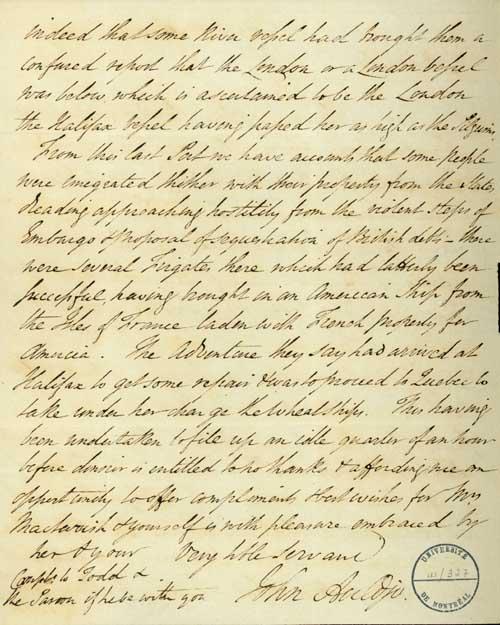 indeed that some River vessel had brought them a
confused report that the London or a London vessel
was below, which is ascertained to be the London
the Halifax vessel having passed her as high as the Pilgrim.
From this last Port we have accounts that some people
were emigrated thither with their property from the States
dreading approaching hostility from the violent steps of
Embargo & Proposal of sequestration of British debts – there
were several Frigates there which had latterly been
successful, having brought in an American Ship from
the Isles of France laden with French property for
America. The Adventure they say had arrived at
Halifax to get some repair & was to proceed to Quebec to
take under her charge the Wheat Ships. This having
been undertaken to file up an idle quarter of an hour
before dinner is entitled to no thanks & affording me an
opportunity to offer compliments & best wishes for Mrs
Mactavish & yourself is with pleasure embraced by
her & your Very hble Servant
Compts to Todd &
the Parson if he be with you
John
UNIVERSITÉ
DE MONTRÉAL